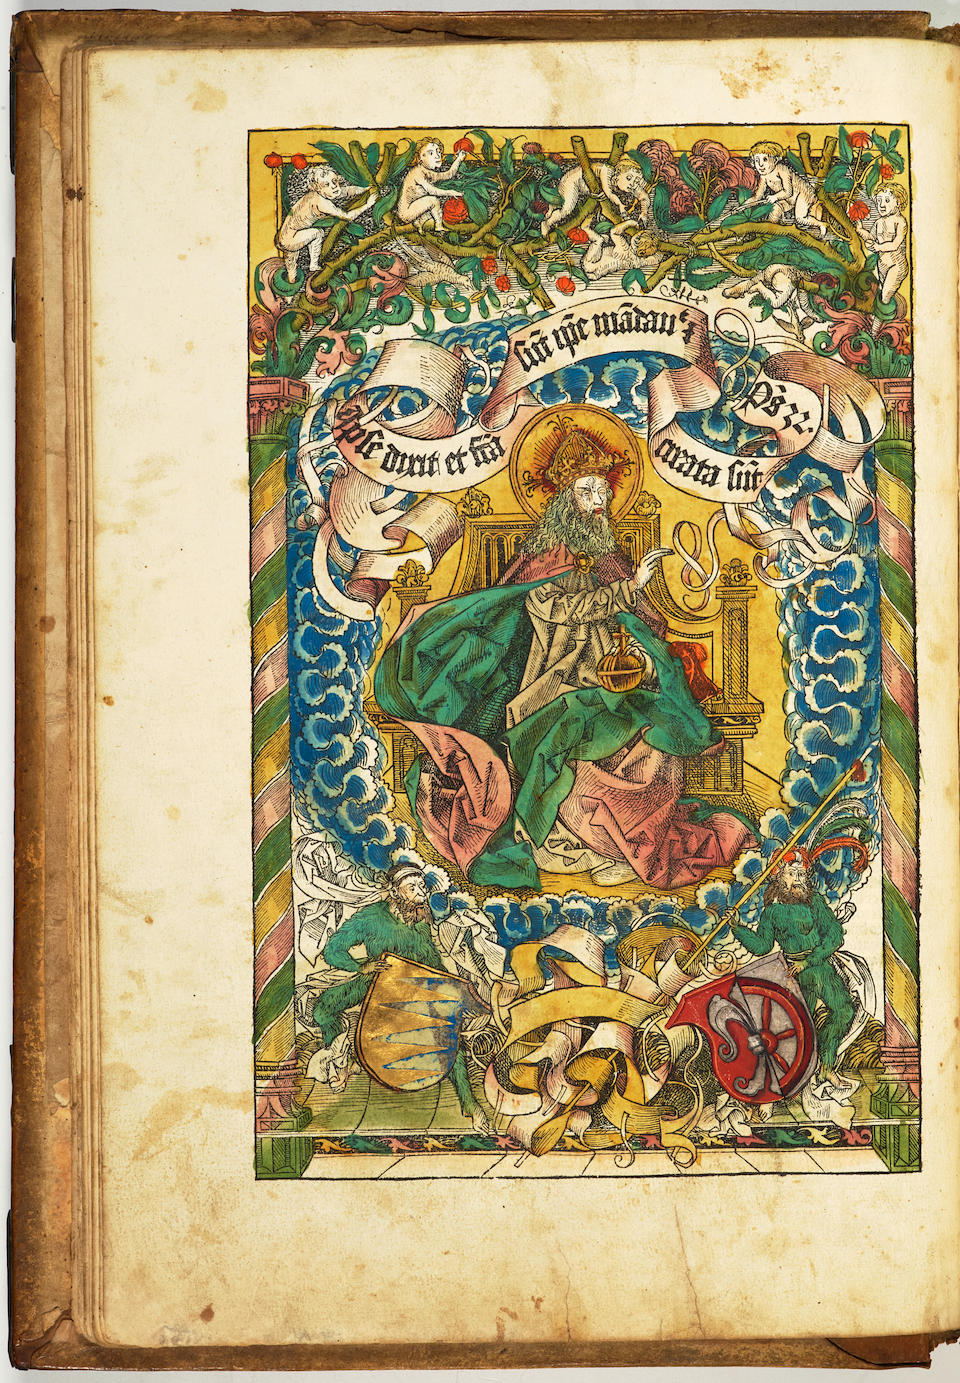 Ipse dixit et fc̄a
sūt ip̄e mādauꝰ ⁊
creata sūt
p̄s 32.